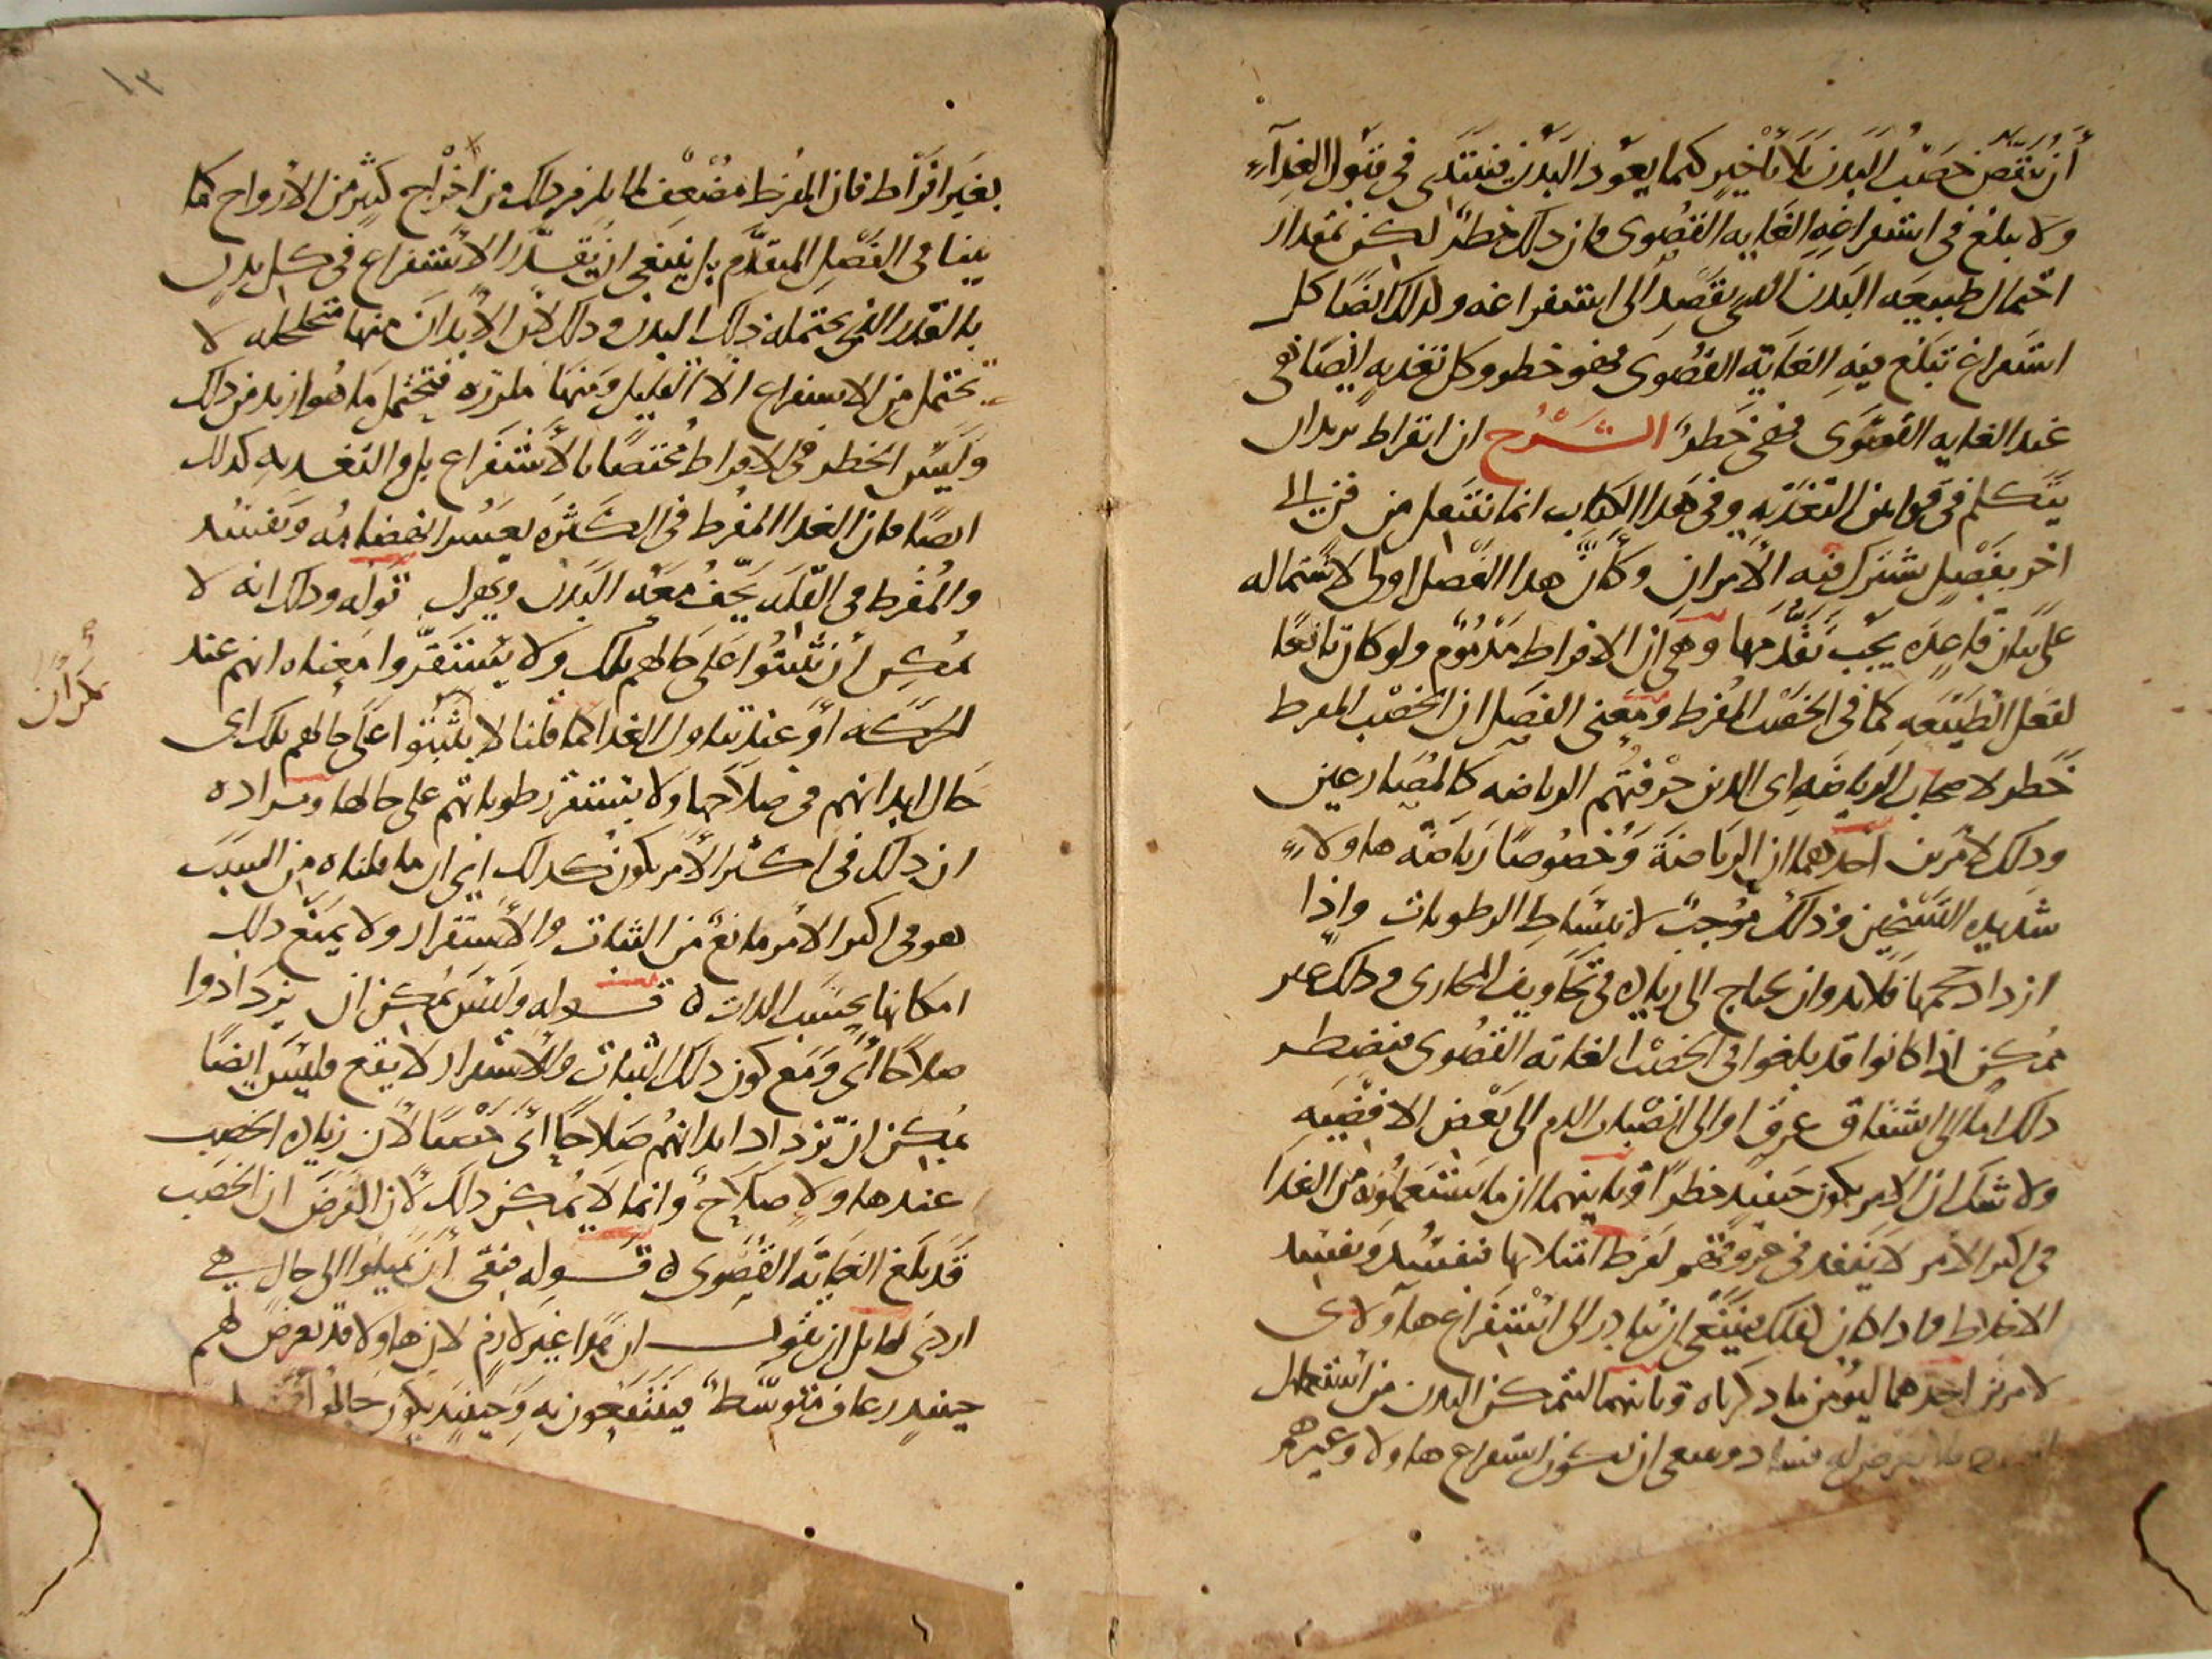 أن ينقص خصب البدن بلا تأخير كيما يعود البدن فيبتدى في قبول الغذآء
ولا يبلغ في استفراغه الغايه القصوى فان ذلك خطر لكن بمقدار
احتمال طبيعه البدن الذي يقصد الى استفراغه وكذلك ايضا كل
استفراغ تبلغ فيه الغاية القصوى فهو خطر وكل تغذيه ايضا هي
عند الغايه القصوى فهي خطر الشرح ان ابقراط يريد ان
يتكلم في قوانين التغذيه وفي هذا الكتاب انما ننتقل من فن الى
اخر بفصل يشترك فيه الأمران وكأن هذا الفصل اولى لاشتماله
على بيان قاعده يجب تقدمها وهي أن الافراط مذموم ولو كان تابعا
لفعل الطبيعه كما في الخصب المفرط ومعنى الفصل ان الخصب المفرط
خطر لاصحاب الرياضه اى الذين حرفتهم الرياضه كالمصارعين
وذلك لأمرين احدهما ان الرياضة وخصوصا رياضة هاولاء
شديده التسخين وذلك موجب لانبساط الرطوبات واذا
ازداد حجمها فلابد وان يحتاج الى زياده في تجاويف المجارى وذلك غير
ممكن اذا كانوا قد بلغوا في الخصب الغايه القصوى فيضطر
ذلك اما الى انشقاق عرق او الى انصباب الدم الى بعض الافضيه
ولا شك ان الامر يكون حينئذ خطرا وثانيهما ان ما يستعملونه من الغذا
في اكثر الامر لا ينفذ في عروقهم لفرط امتلائها فيفسد ويفسد
الاخلاط واذا كان كذلك فينبغي ان يبادر الى استفراغ هآولاى
لامرين احدهما ليؤمن ما ذكرناه وثانيهما ليتمكن البدن من استعمال
فلا يعرض له فساد وينبغي ان يكون استفراغ هاولا وغيرهم
١٣
بغير افراط فان المفرط مضعف لما يلزم ذلك من اخراج كثير من الارواح كما
بينا في الفصل المتقدم بل ينبغي ان يقدر الاستفراغ في كل بدن
بالقدر الذي يحتمله ذلك البدن وذلك لان الأبدان منها متخلخله لا
تحتمل من الاستفراغ الا القليل ومنها ملززه فتحتمل ما هو ازيد من ذلك
وليس الخطر في الافراط مختصا بالأستفراغ بل والتغذيه كذلك
ايضا فان الغذا المفرط في الكثره يعسر انهضامه ويفسد
والمفرط في القله يجف معه البدن ويهزل قوله وذلك انه لا
يمكن أن يثبتوا على حالهم تلك ولا يستقروا معناه انهم عند
الحركه او عند تناول الغذا كما قلنا لا يثبتوا على حالهم تلك اى
حال ابدانهم في صلاحها ولا يستقر رطوباتهم على حالها ومراده
ان ذلك في اكثر الأمر يكون كذلك اي ان ما قلناه من السبب
هو في اكثر الامر مانع من الثبات والأستقرار ولا يمنع ذلك
امكانها بحسب الذات ه قوله وليس يمكن ان يزدادوا
صلاحا أي ومع كون ذلك الثبات والأستقرار لا يقع فليس ايضا
يمكن ان تزداد ابدانهم صلاحا أى خصبا لأن زياده الخصب
عندهاولا صلاح وانما لا يمكن ذلك لأن الفرض ان الخصب
قد بلغ الغاية القصوى ه قوله فبقى أن يميلوا الى حال هي
اردى لقايل ان يقول ان هذا غير لازم لان هاولا قد يعرض لهم
حينئذ رعاف متوسط فينتفعون به وحينئذ يكون حالهم
بحران